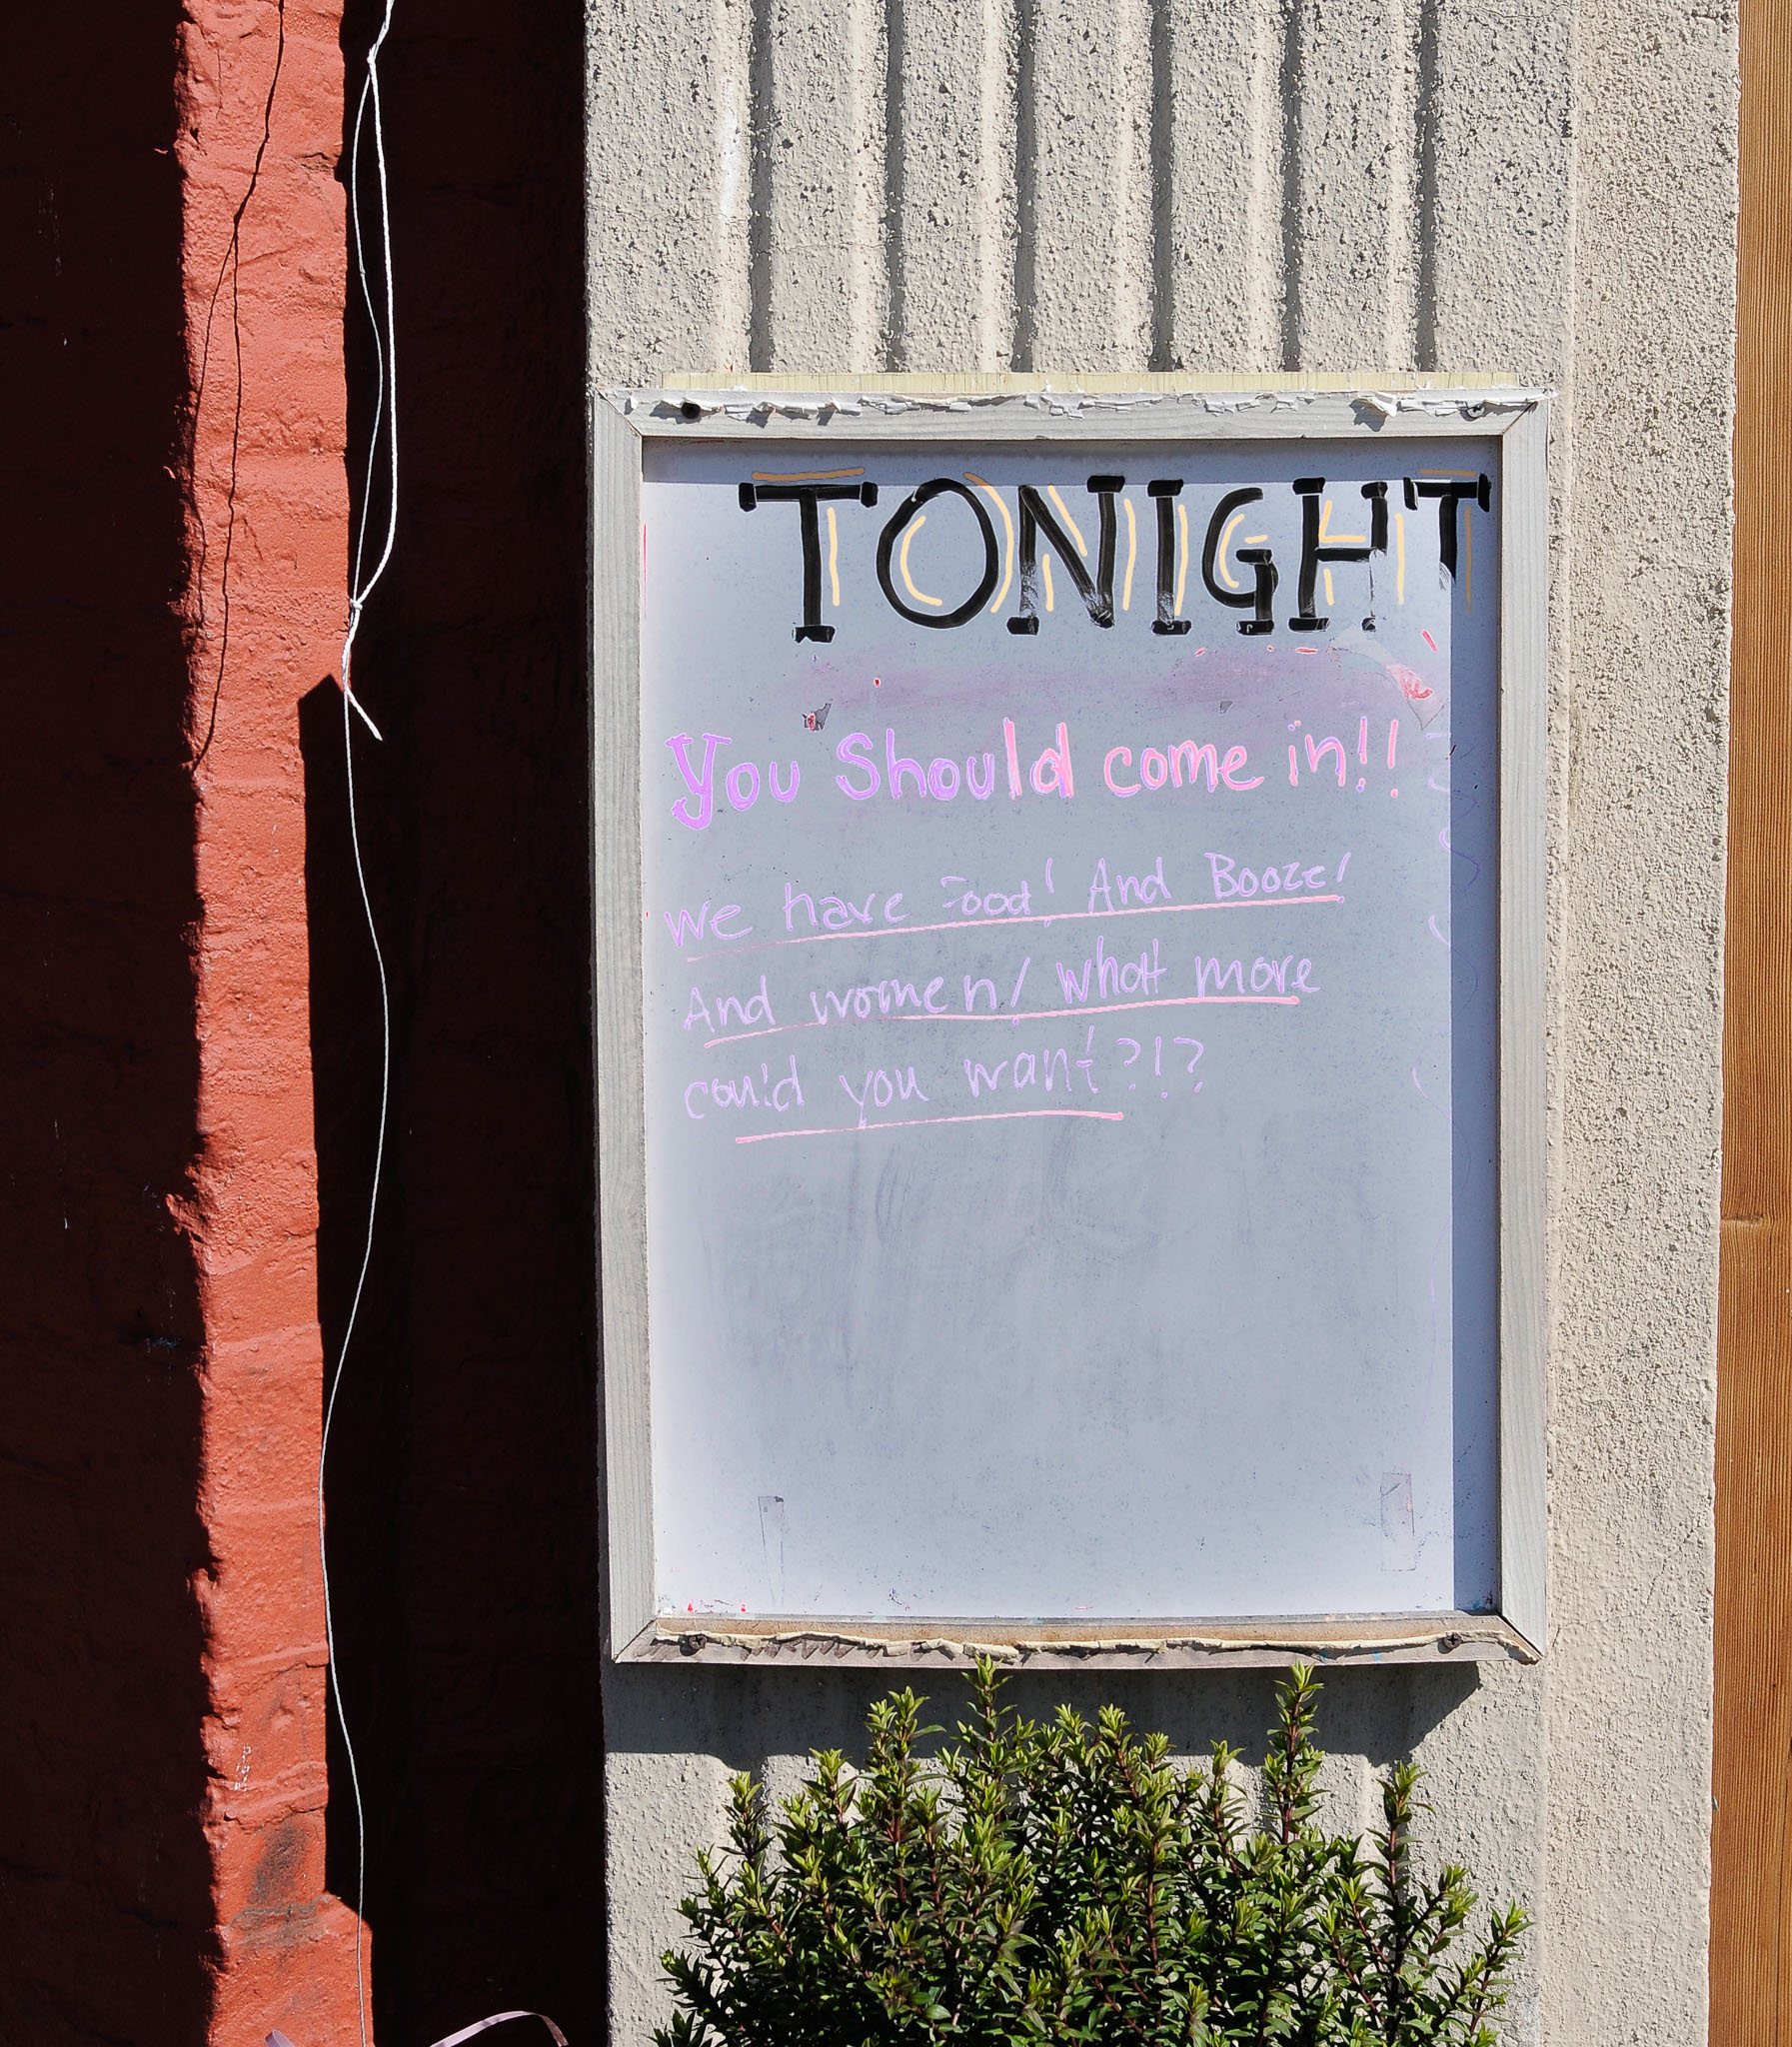 TONIGHT
You Should come in!!
We have Food! And Booze!
And women! What more
could you want?!?